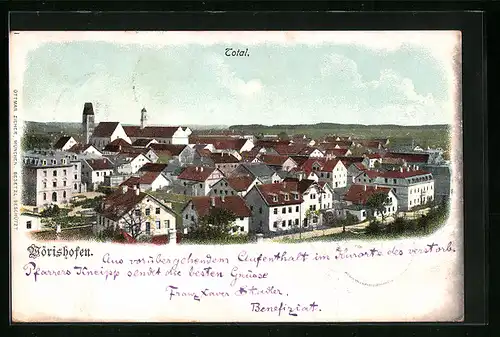 Total.
OTTMAR ZIEHER, MÜNCHEN. GESETZL. GESCHÜTZT
Wörishofen.
Aus vorübergehendem Aufenthalt im Kurorte des verstorb.
Pfarrers Kneipp sendet die besten Grüsse
Franz Xaver Stadler,
Benefiziat.